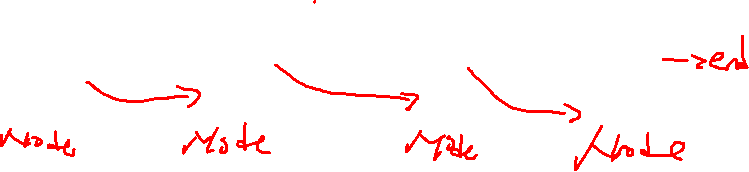 → end
Node Node Node Node